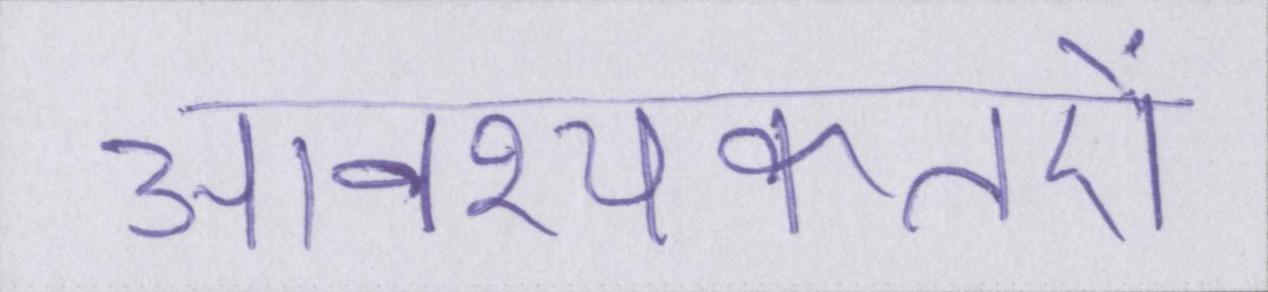 आवश्यकतएों